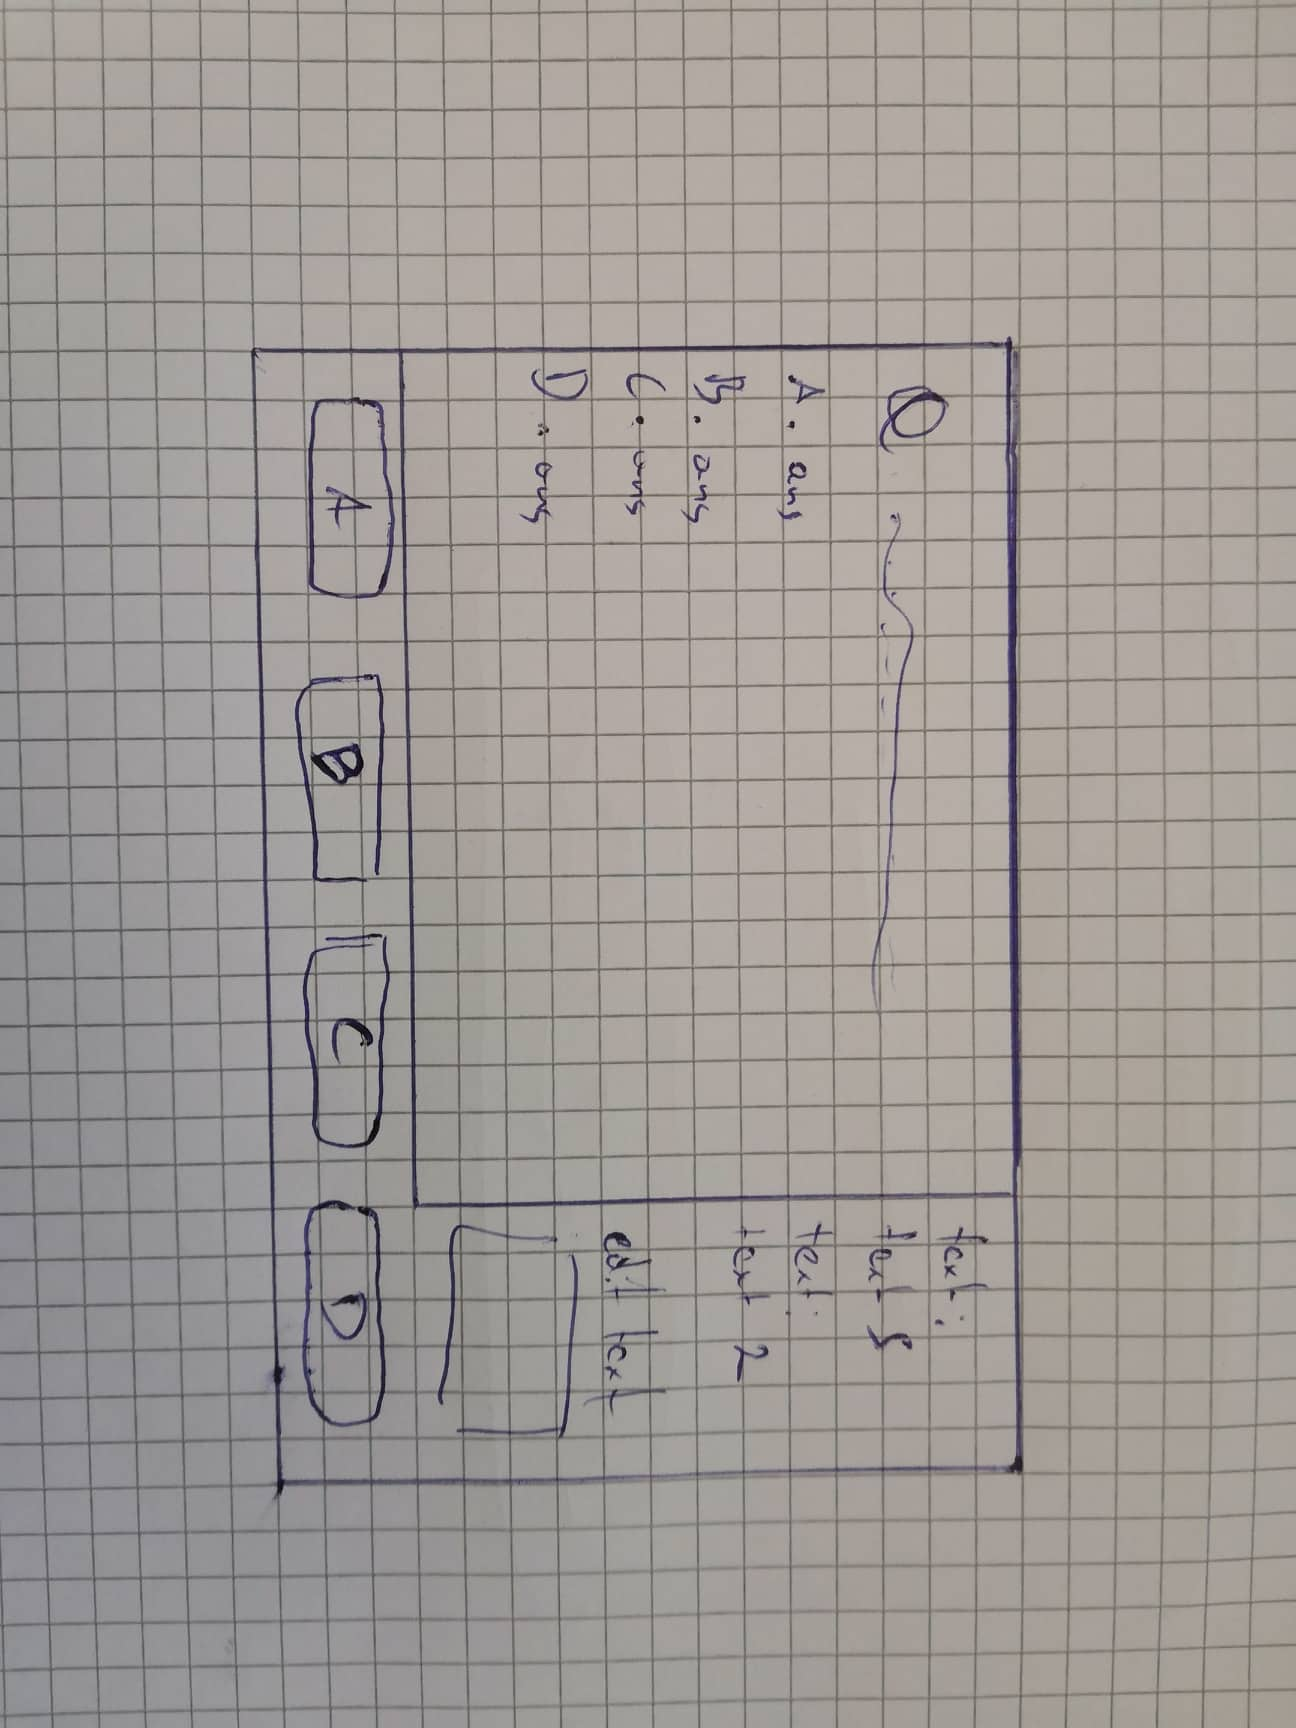 Q
A. ans
B. ans
C. ans
D. ans
text:
text
text:
text 2
edit text
A
B
C
D